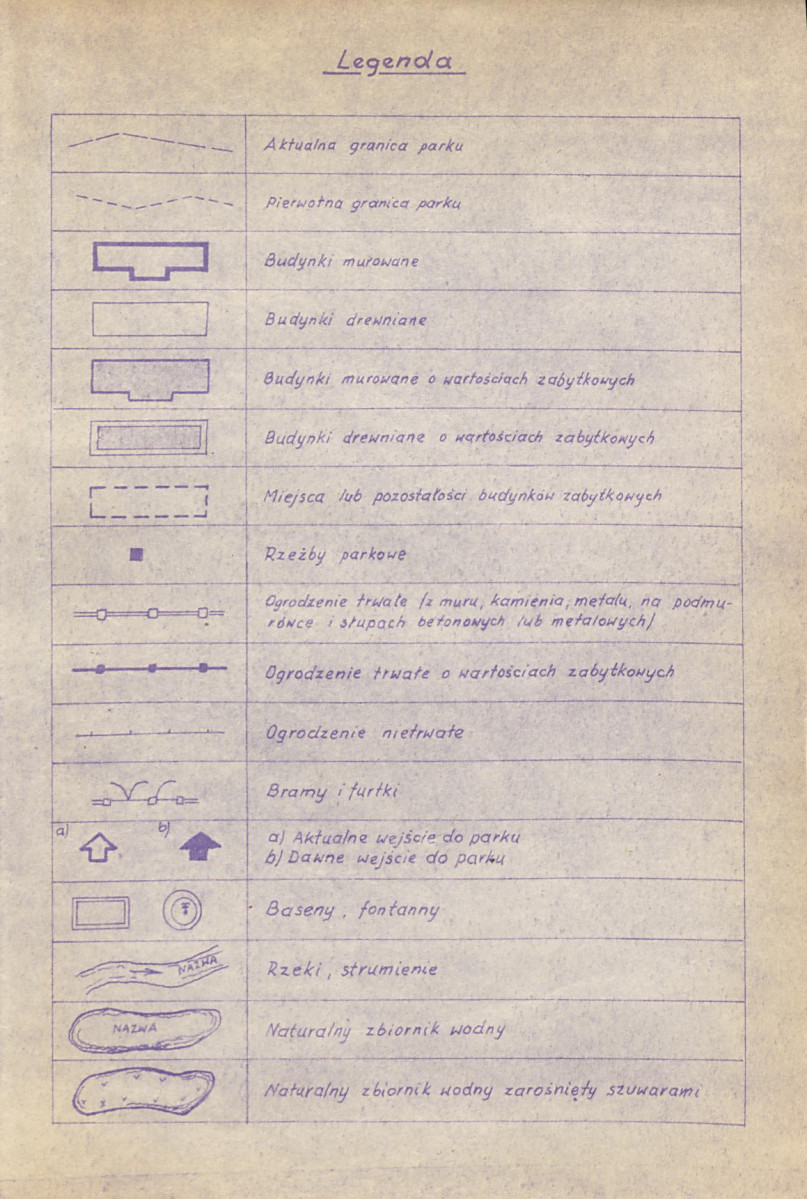 Legenda
Aktualna granica parku
Pierwotna granica parku
Budynki murowane
Budynki drewniane
Budynki murowane o wartościach zabytkowych
Budynki drewniane o wartościach zabytkowych
Miejsca lub pozostałości budynków zabytkowych
Rzeźby parkowe
Ogrodzenie trwałe /z muru, kamienia, metalu, na podmu-
rówce i słupach betonowych lub metalowych/
Ogrodzenie trwałe o wartościach zabytkowych
Ogrodzenie nietrwałe
Bramy i furtki
a) b) a) Aktualne wejście do parku
b) Dawne wejście do parku
Baseny, fontanny
NAZWA Rzeki, strumienie
NAZWA Naturalny zbiornik wodny
Naturalny zbiornik wodny zarośnięty szuwarami